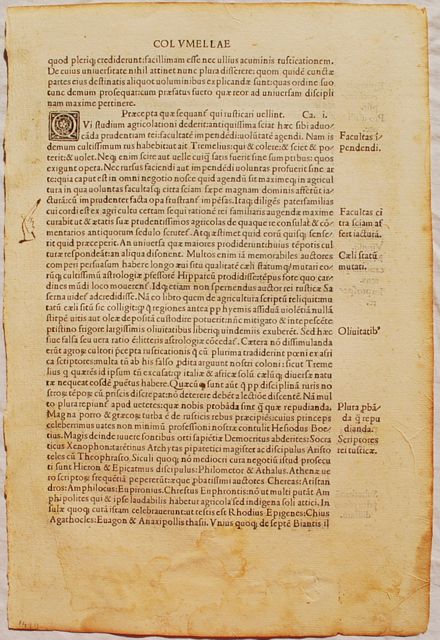 COLVMELLAE
quod pleriq; crediderunt: facillimam esse nec ullius acuminis rusticationem.
De cuius uniuersitate nihil attinet nunc plura disserere: quom quidē cunctæ
partes eius destinatis aliquot uoluminibus explicandæ sunt: quas ordine suo
tunc demum prosequar: cum præfatus fuero quæ reor ad uniuersam discipli
nam maxime pertinere.
Præcepta quæ sequant qui rusticari uellint. Ca. i.
Q Vi studium agricolationi dederit: antiquissima sciat hæc sibi aduo
cāda prudentiam rei: facultatē impendēdi: uolūtatē agendi. Nam is
Facultas ī
demum cultissimum rus habebit ut ait Tremelius: qui & colere: & sciet & po
pendendi.
terit: & uolet. Neq; enim scire aut uelle cuiq̄ satis fuerit sine sumptibus: quos
exigunt opera. Nec rursus faciendi aut impendēdi uoluntas profuerit sine ar
te: quia caput est in omni negotio nosse quid agendū sit: maximeq; in agricul
tura: in qua uoluntas facultasq; citra sciam sæpe magnam dominis afferūt ia
cturā: cū imprudenter facta opa frustrant impēsas. Itaq; diligēs paterfamilias
cui cordi est ex agri cultu certam sequi rationē rei familiaris augendæ maxime
Facultas ci
curabit ut & ætatis suæ prudentissimos agricolas de quaque re consulat & cō
tra sciam af
mentarios antiquorum sedulo scrutet. Atq; æstimet quid eorū quisq; sense
fert iacturā.
rit quid præceperit. An uniuersa quæ maiores prodiderunt huius tēporis cul
turæ respondeāt: an aliqua dissonent. Multos enim iā memorabiles auctores
Cæli statū
comperi persuasum habere longo æui situ qualitatē cæli statumq; mutari: eo
mutati.
rūq; cultissimū astrologiæ pfessorē Hipparcū prodidisse: tēpus fore quo car
dines mūdi loco mouerent. Idq; etiam non spernendus auctor rei rusticæ Sa
serna uidet adcredidisse. Nā eo libro quem de agricultura scriptū reliquit: mu
tatū cæli sitū sic colligit: q̄ q̄ regiones antea pp hyemis assiduā uiolētiā nullā
stirpē uitis aut oleæ depositā custodire potuerit: nūc mitigato & intepescēte
pristino frigore largissimis oliuitatibus liberiq; uindemiis exuberēt. Sed hæc
Oliuitatib⁹
siue falsa seu uera ratio ē: litteris astrologiæ cōcedat. Cætera nō dissimulanda
erūt agrorū cultori præcepta rusticationis q̄ cū plurima tradiderint pœni ex afri
ca scriptores: multa tn̄ ab his falso pdita arguunt nostri coloni: sicut Treme
lius q̄ querēs id ipsum tn̄ excusat: q; italiæ & africæ solū cælūq; diuersæ natu
ræ nequeat eosdē puētus habere. Quæcūq; sunt aūt q̄ pp disciplinā ruris no
strorū tēporū cū priscis discrepāt: nō deterere debēt a lectiōe discentē. Nā mul
to plura repiunt apud ueteres: quæ nobis probāda sint q̄ quæ repudianda.
Plura pbā
Magna porro & græcorū turba ē de rusticis rebus præcipiēs: cuius princeps
da q̄ repu
celeberrimus uates non minimū professioni nostræ contulit Hesiodus Boe
dianda.
tius. Magis deinde iuuere fontibus orti sapiētiæ Democritus abderites: Socra
Scriptores
ticus Xenophon: tarētinus Archytas: pipatetici magister ac discipulus Aristo
rei rusticæ.
teles cū Theophrasto. Siculi quoq; nō mediocri cura negotiū istud prosecu
ti sunt Hieron & Epicarmus discipulus: Philometor & Athalus. Athenæ ue
ro scriptorū frequētiā pepererūt: æqꝫ, pbatissimi auctores Chereas: Aristan
dros: Amphilocus: Eupironius. Chrestus Euphronius: nō ut multi putāt Am
phipolites qui & ipse laudabilis habetur agricola: sed indigena soli attici. In
sulæ quoq; curā istam celebrauerunt: ut testis est Rhodius Epigenes: Chius
Agathocles: Euagon & Anaxipolis thasii. Vnius quoq; de septē Biantis il